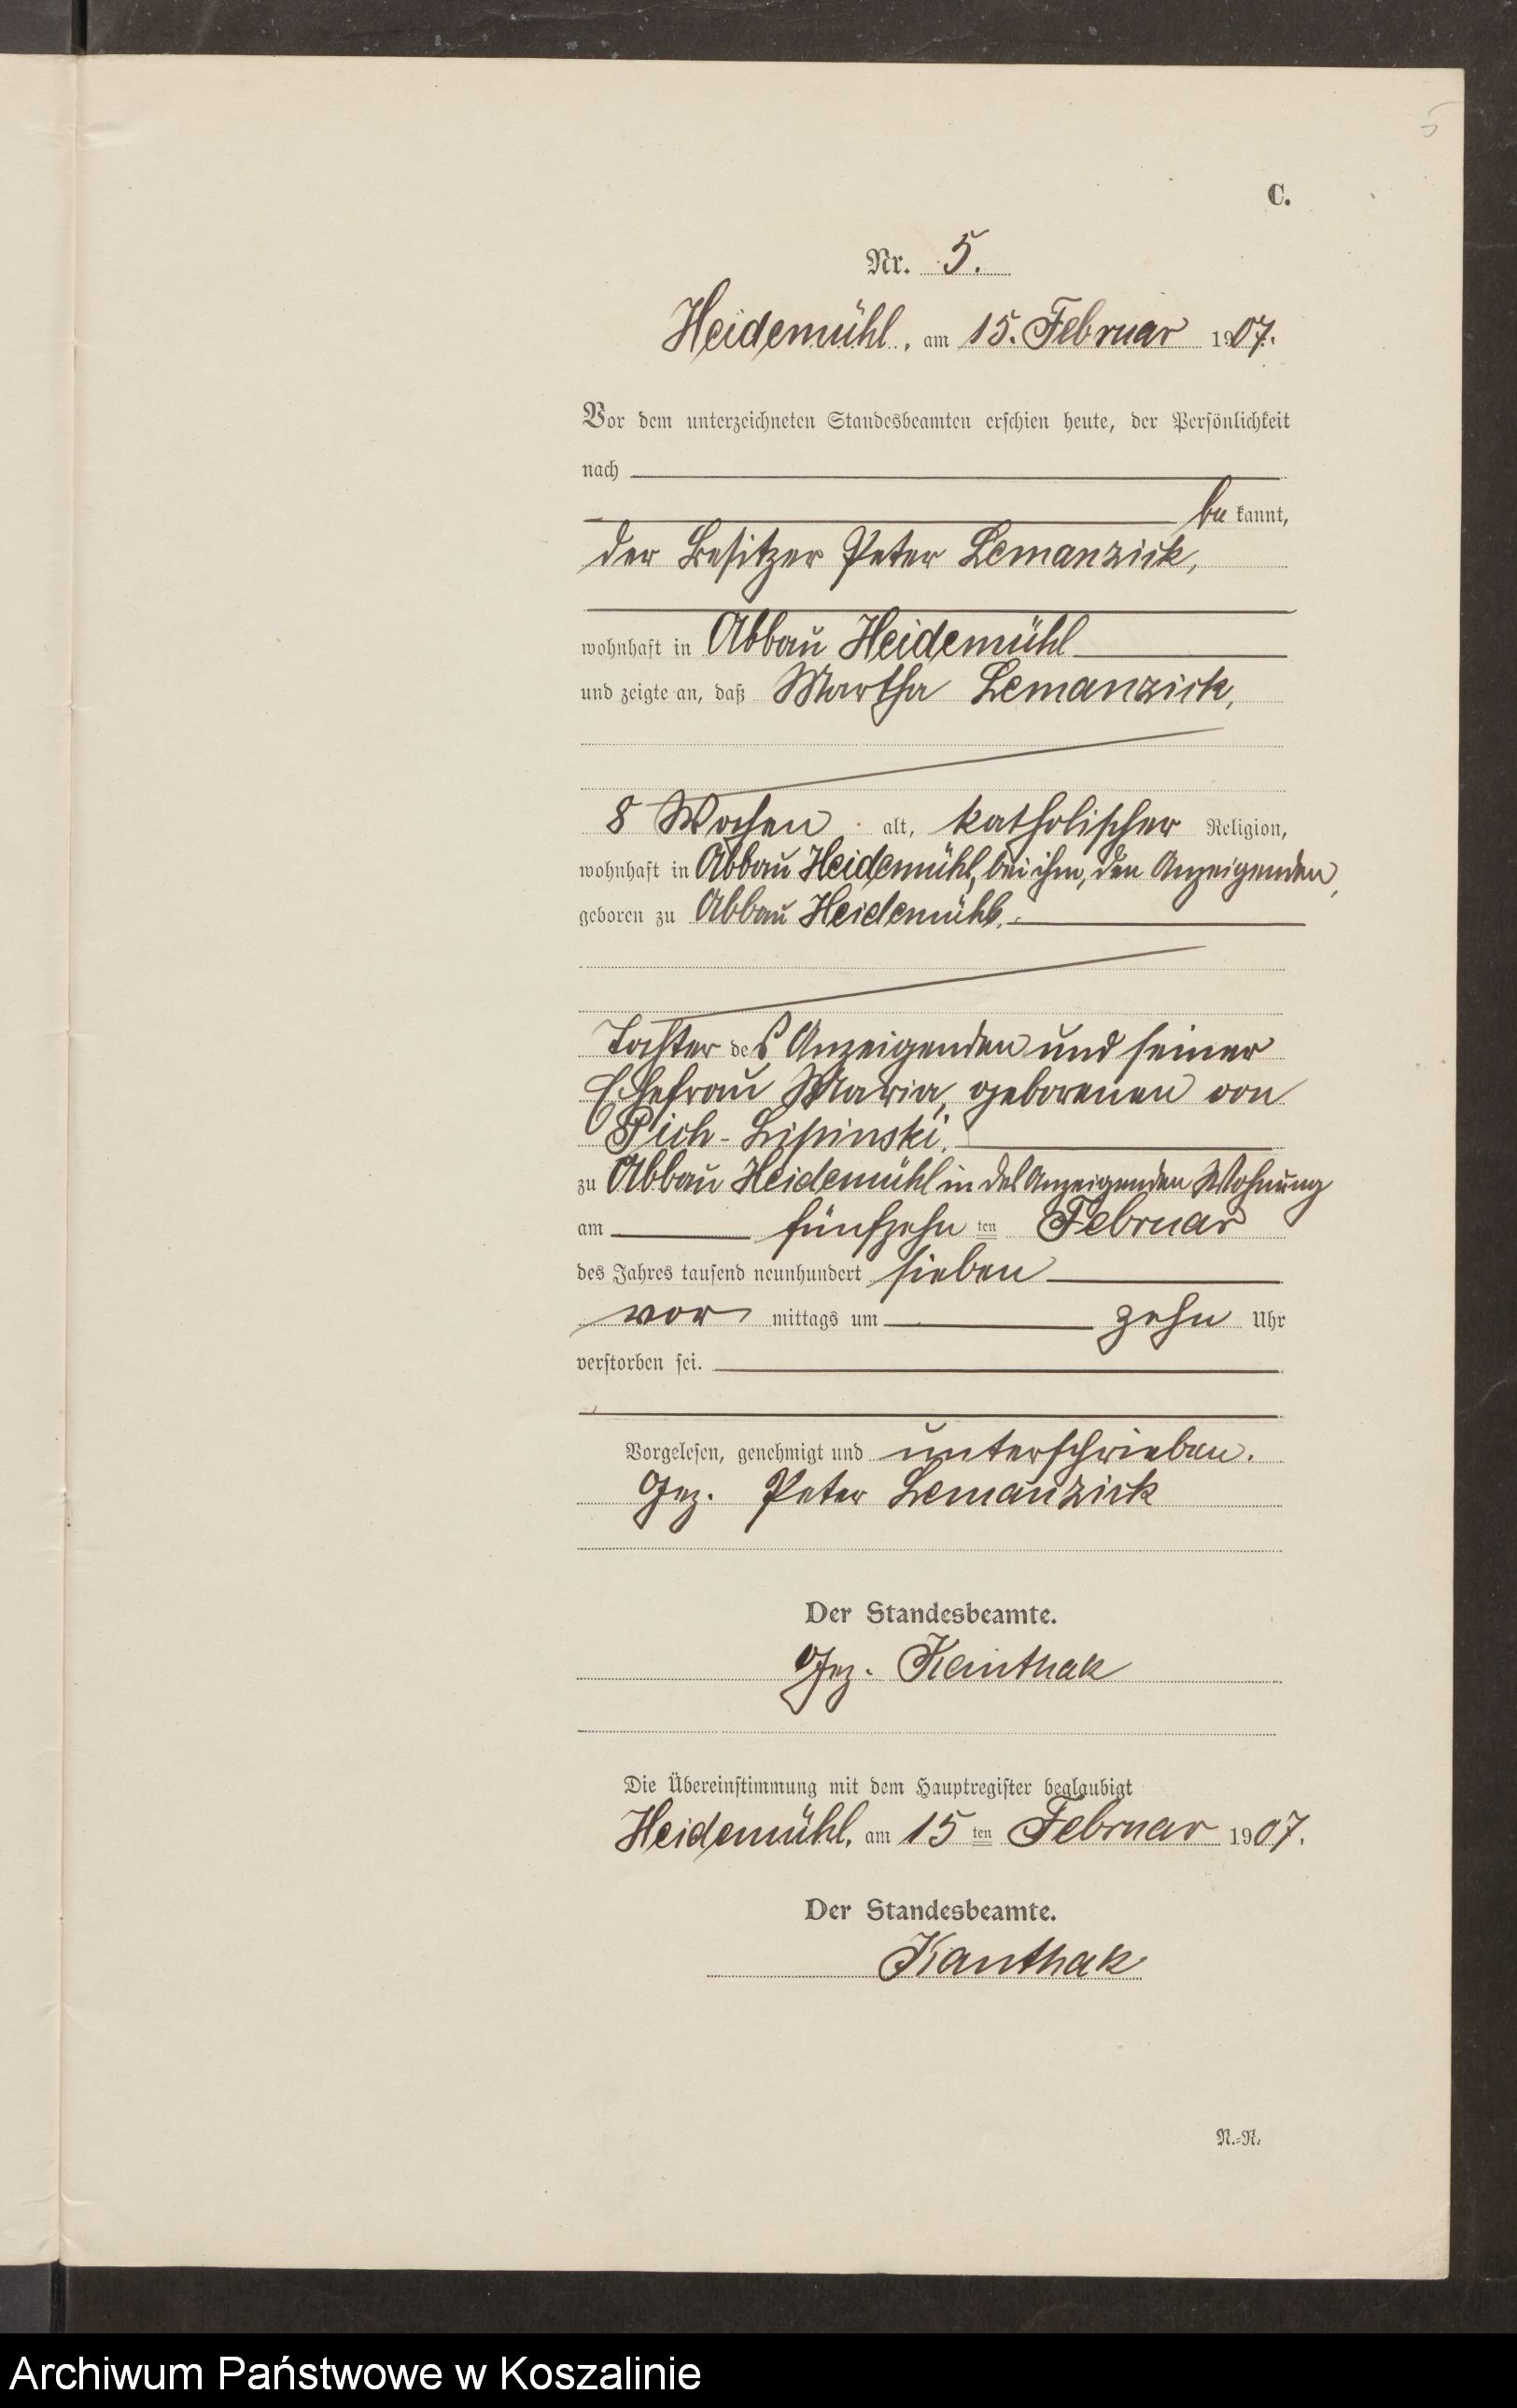 5
C.
Nr. 5.
Heidemühl, am 15. Februar 1907.
Vor dem unterzeichneten Standesbeamten erschien heute, der Persönlichkeit
nach
be kannt,
der Besitzer Peter Lemanzick,
wohnhaft in Abbau Heidemühl
und zeigte an, daß Martha Lemanzick,
8 Wochen alt, katholischer Religion,
wohnhaft in Abbau Heidemühl, bei ihm, den Anzeigenden,
geboren zu Abbau Heidemühl.
Tochter des Anzeigenden und seiner
Ehefrau Maria, geborenen von
Pich-Lipinski.
zu Abbau Heidemühl in des Anzeigenden Wohnung
am fünfzehn ten Februar
des Jahres tausend neunhundert sieben
vor mittags um zehn Uhr
verstorben sei.
Vorgelesen, genehmigt und unterschrieben.
Gez. Peter Lemanzick
Der Standesbeamte.
Gez. Kanthak
Die Übereinstimmung mit dem Hauptregister beglaubigt
Heidemühl, am 15 ten Februar 1907.
Der Standesbeamte.
Kanthak
N.-N.
Archiwum Państwowe w Koszalinie